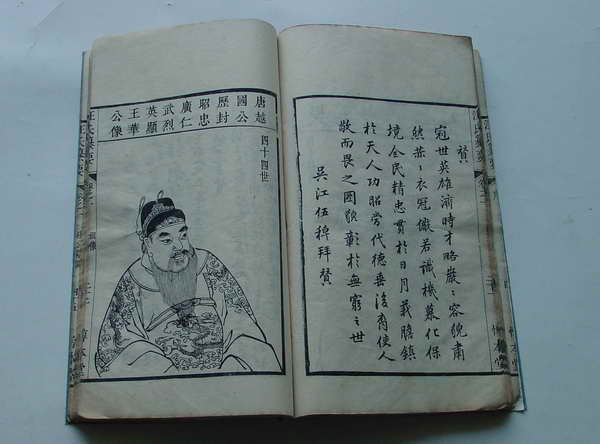 贊
冠世英雄濟時才略嚴〻容貌肅
然恭〻衣冠儼若識機慕化保
境全民精忠貫於日月義膽鎮
於天人功昭當代德垂後裔使人
敬而畏之圖貌彰於無窮之世
吳江伍拜贊
唐越
國公
歷封
昭忠
廣仁
武烈
英顯
王華
公像
四十四世